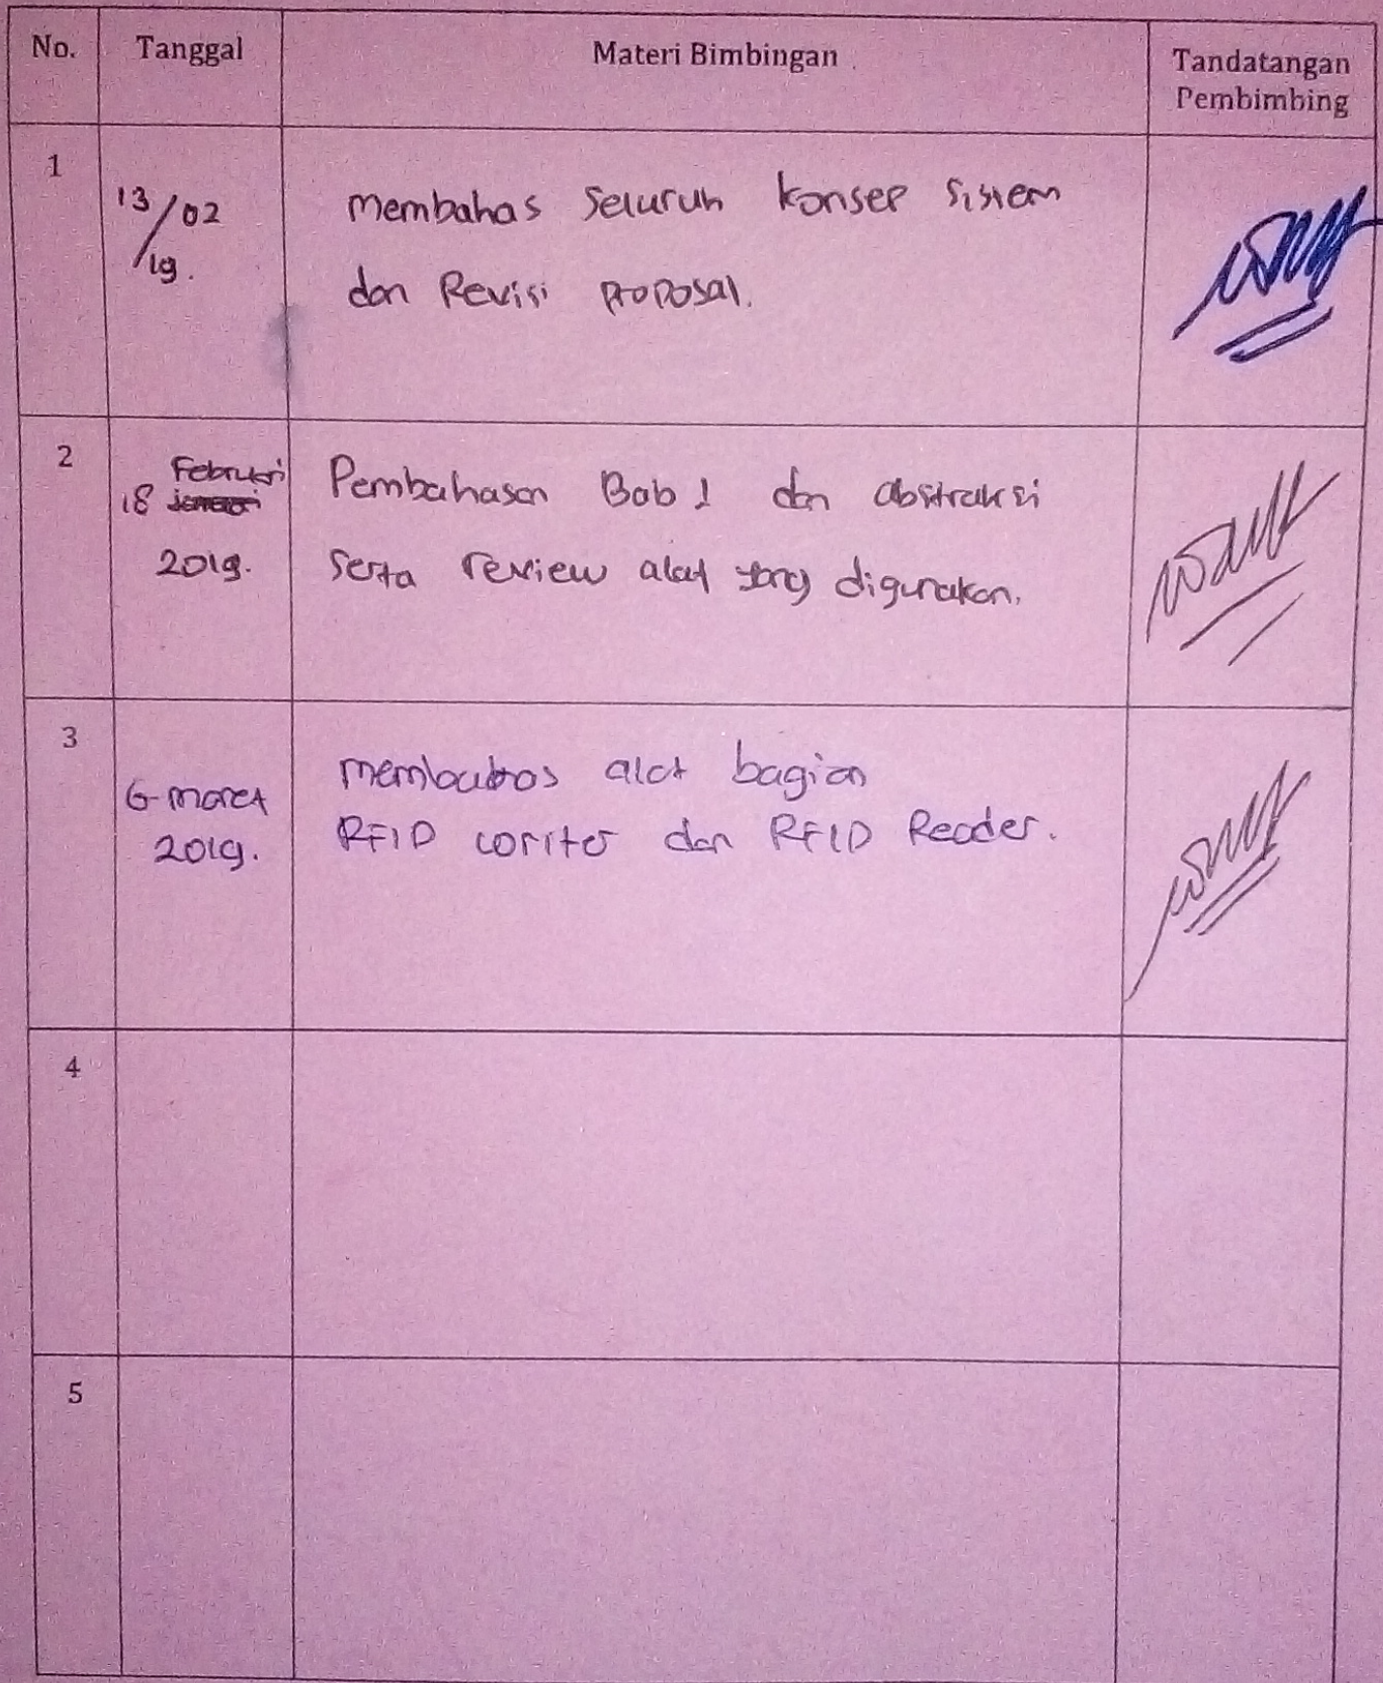 No. Tanggal Materi Bimbingan Tandatangan
Pembimbing
1
13/02/19.
membahas seluruh konsep sistem
dan Revisi proposal.
2
Februari
18 januari
2019.
Pembahasan Bab 1 dan abstraksi
serta review alat yang digunakan.
3
6 maret
2019.
membahas alat bagian
RFID writer dan RFID Reader.
4
5